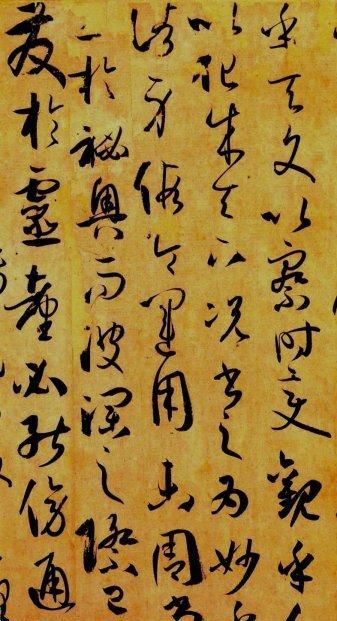 乎天文以察時變觀乎
以化成天下況書之為妙
諸身假令運用未周尚
工於秘奧而波瀾之際已
發於靈臺必能傍通